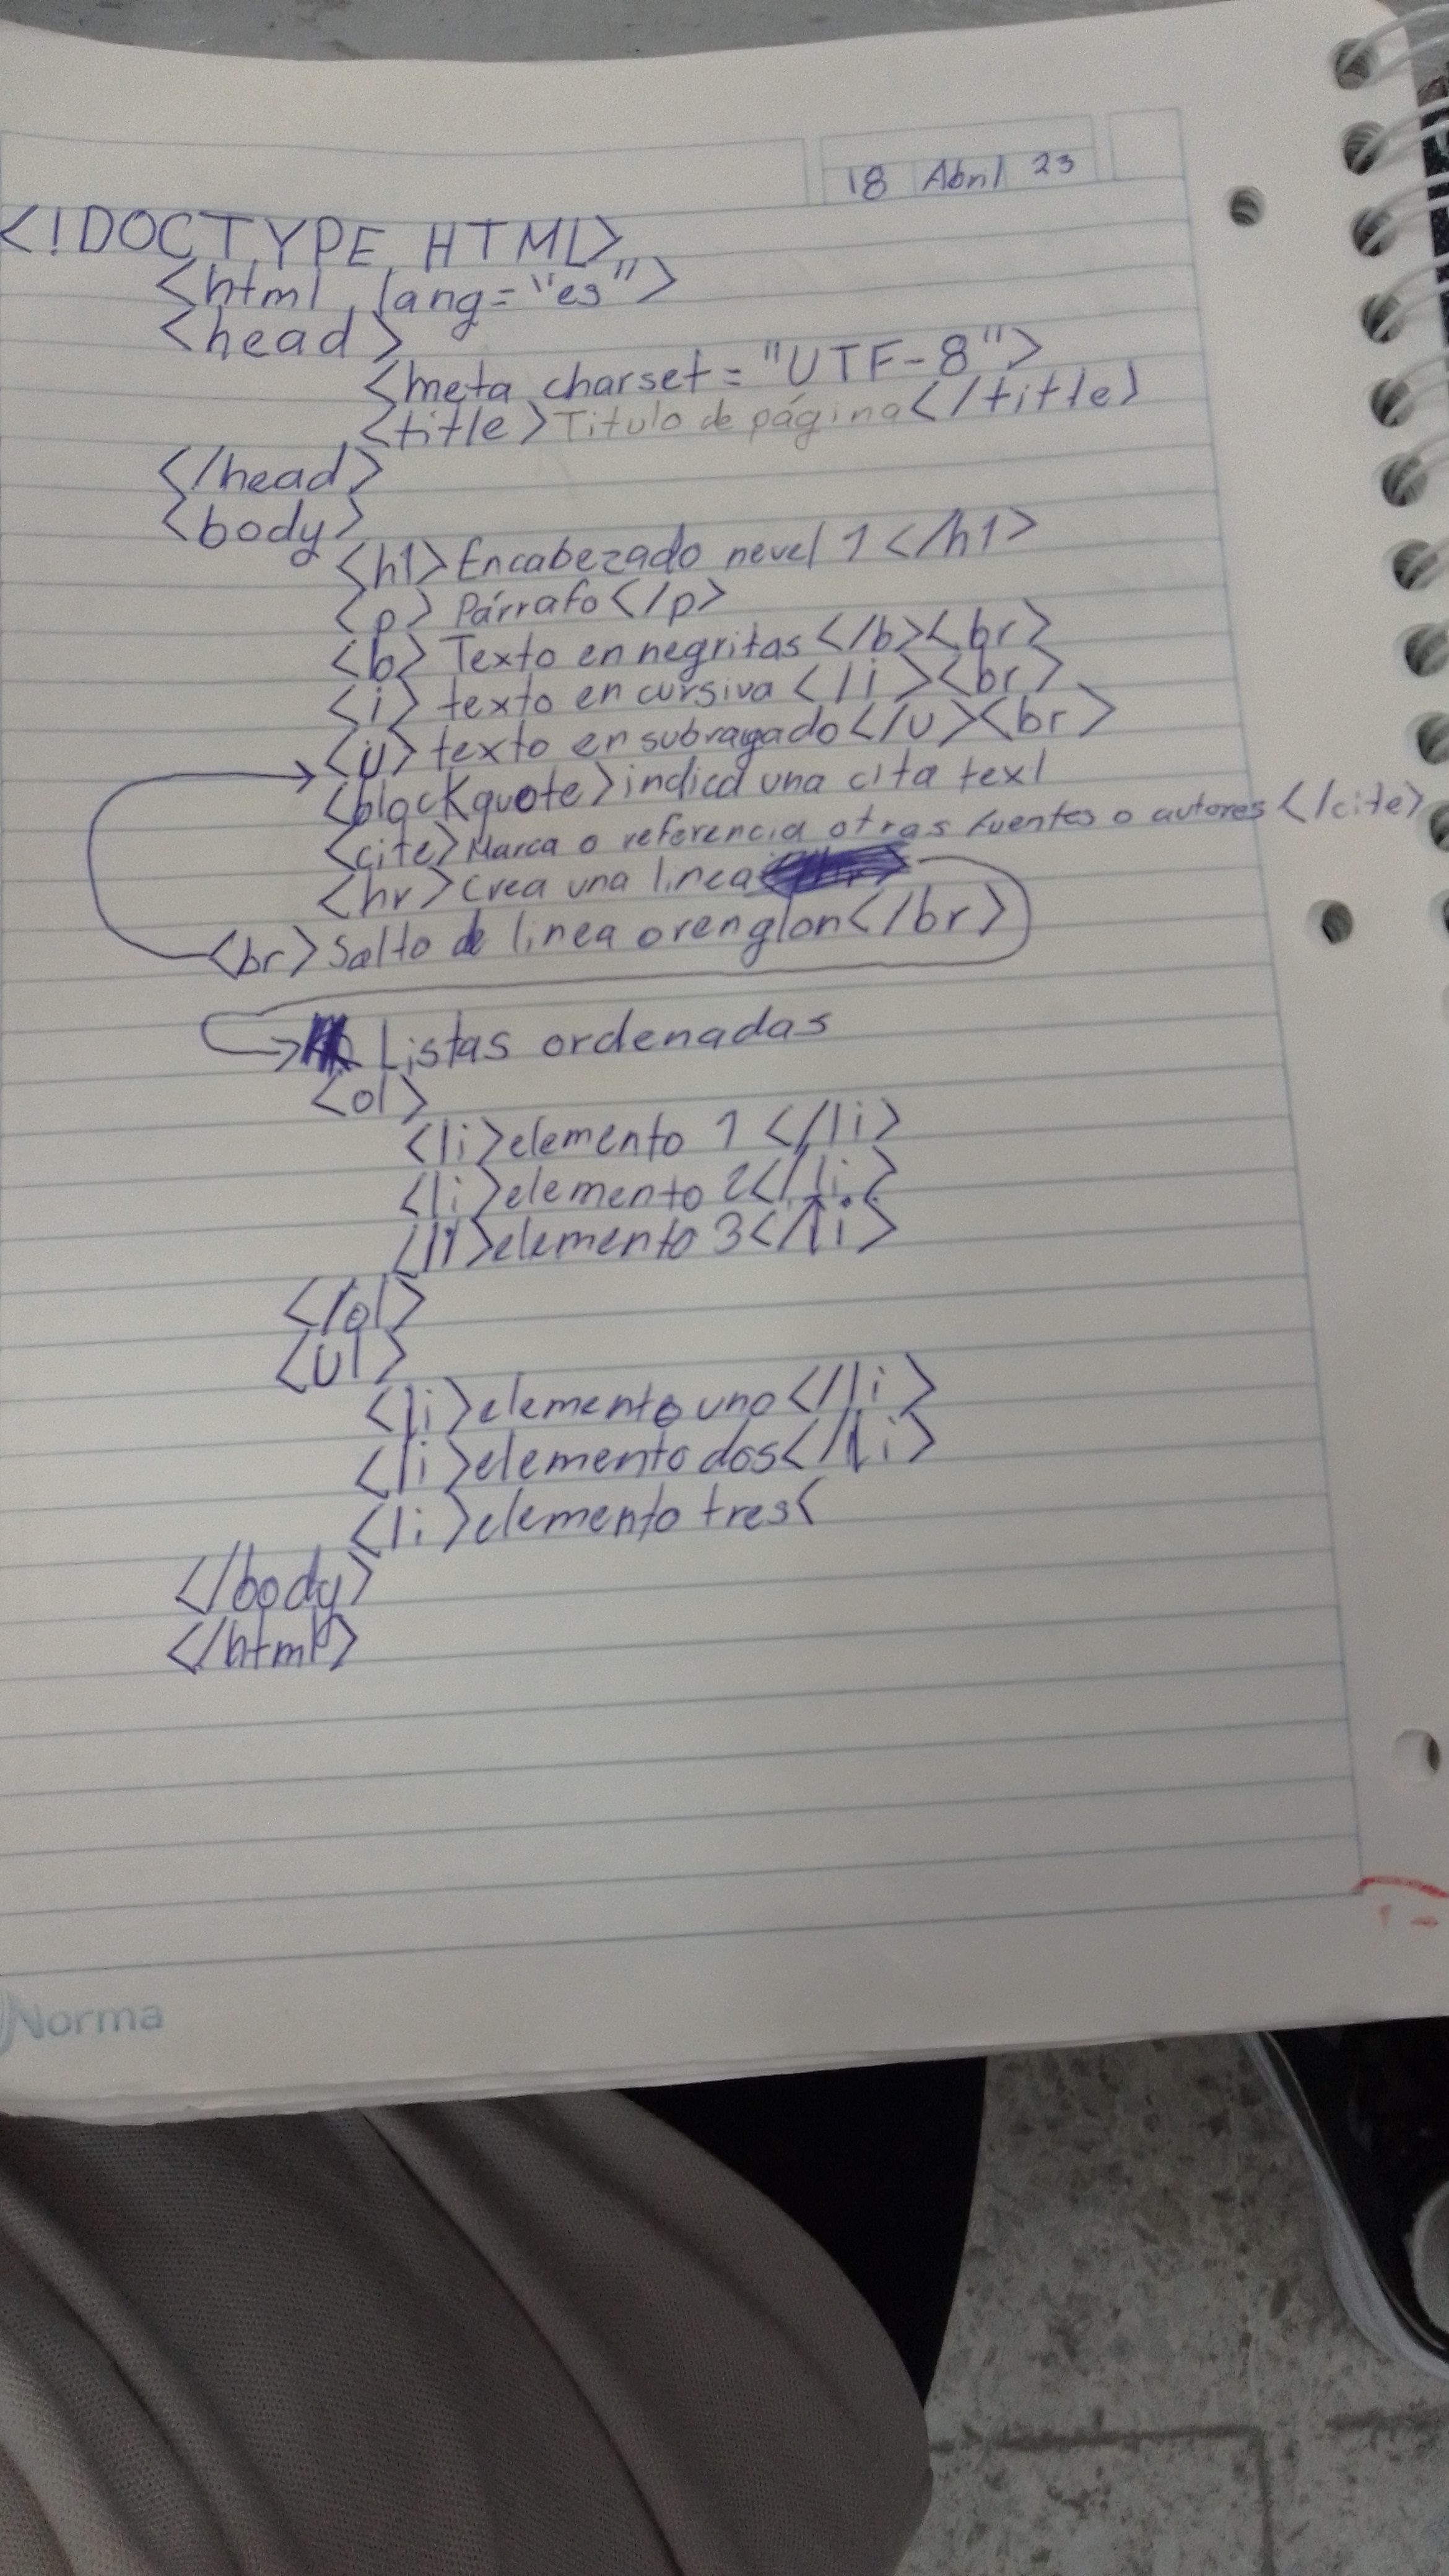 18 Abril 23
<!DOCTYPE HTML>
<html lang="es">
<head>
<meta charset="UTF-8">
<title>Titulo de página</title>
</head>
<body>
<h1>Encabezado nevel 1</h1>
<p> Párrafo</p>
<b> Texto en negritas</b><br>
<i> texto en cursiva </i><br>
<u> texto en subrayado</u><br>
<blockquote>indica una cita text
<cite>Marca o referencia otras fuentes o autores</cite>
<hr>Crea una linea
<br>Salto de linea o renglon</br>
Listas ordenadas
<ol>
<li>elemento 1 </li>
<li>elemento 2</li>
<li>elemento 3</li>
</ol>
<ul>
<li>elemento uno</li>
<li>elemento dos</li>
<li>elemento tres<
</body>
</html>
Norma